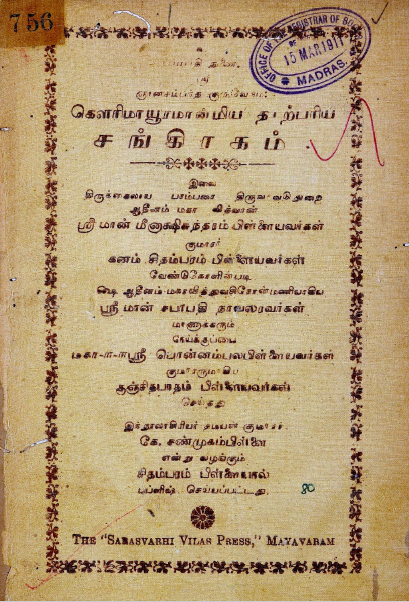 756
OFFICE OF THE REGISTRAR OF BOOKS
15 MAR 1911
MADRAS.
உ
கணபதி துணை.
ஸ்ரீ
ஞானசம்பந்த குருவேநம:
கௌரிமாயூரமான்மிய தாற்பரிய
சங்கிரகம்.
இவை
திருக்கைலாய பரம்பரை திருவாவடுதுறை
ஆதீனம் மகா வித்வான்
ஸ்ரீமான் மீனாக்ஷிசுந்தரம் பிள்ளையவர்கள்
குமாரர்
கனம் சிதம்பரம் பிள்ளையவர்கள்
வேண்டுகோளின்படி
ஷெ ஆதீனம்-மகாவித்துவசிரோன்மணியாகிய
ஸ்ரீமான் சபாபதி நாவலரவர்கள்
மாணாக்கரும்
மகா-ா-ா-ஸ்ரீ பொன்னம்பலபிள்ளையவர்கள்
குமாரருமாகிய
குஞ்சிதபாதம் பிள்ளையவர்கள்
செய்தது
இந்நூலாசிரியர் தமயன் குமாரர்
கே. சண்முகம்பிள்ளை
என்று வழங்கும்
சிதம்பரம் பிள்ளையால்
பப்ளிஷ் செய்யப்பட்டது.
80
THE "SARASVARHI VILAS PRESS," MAYAVARAM